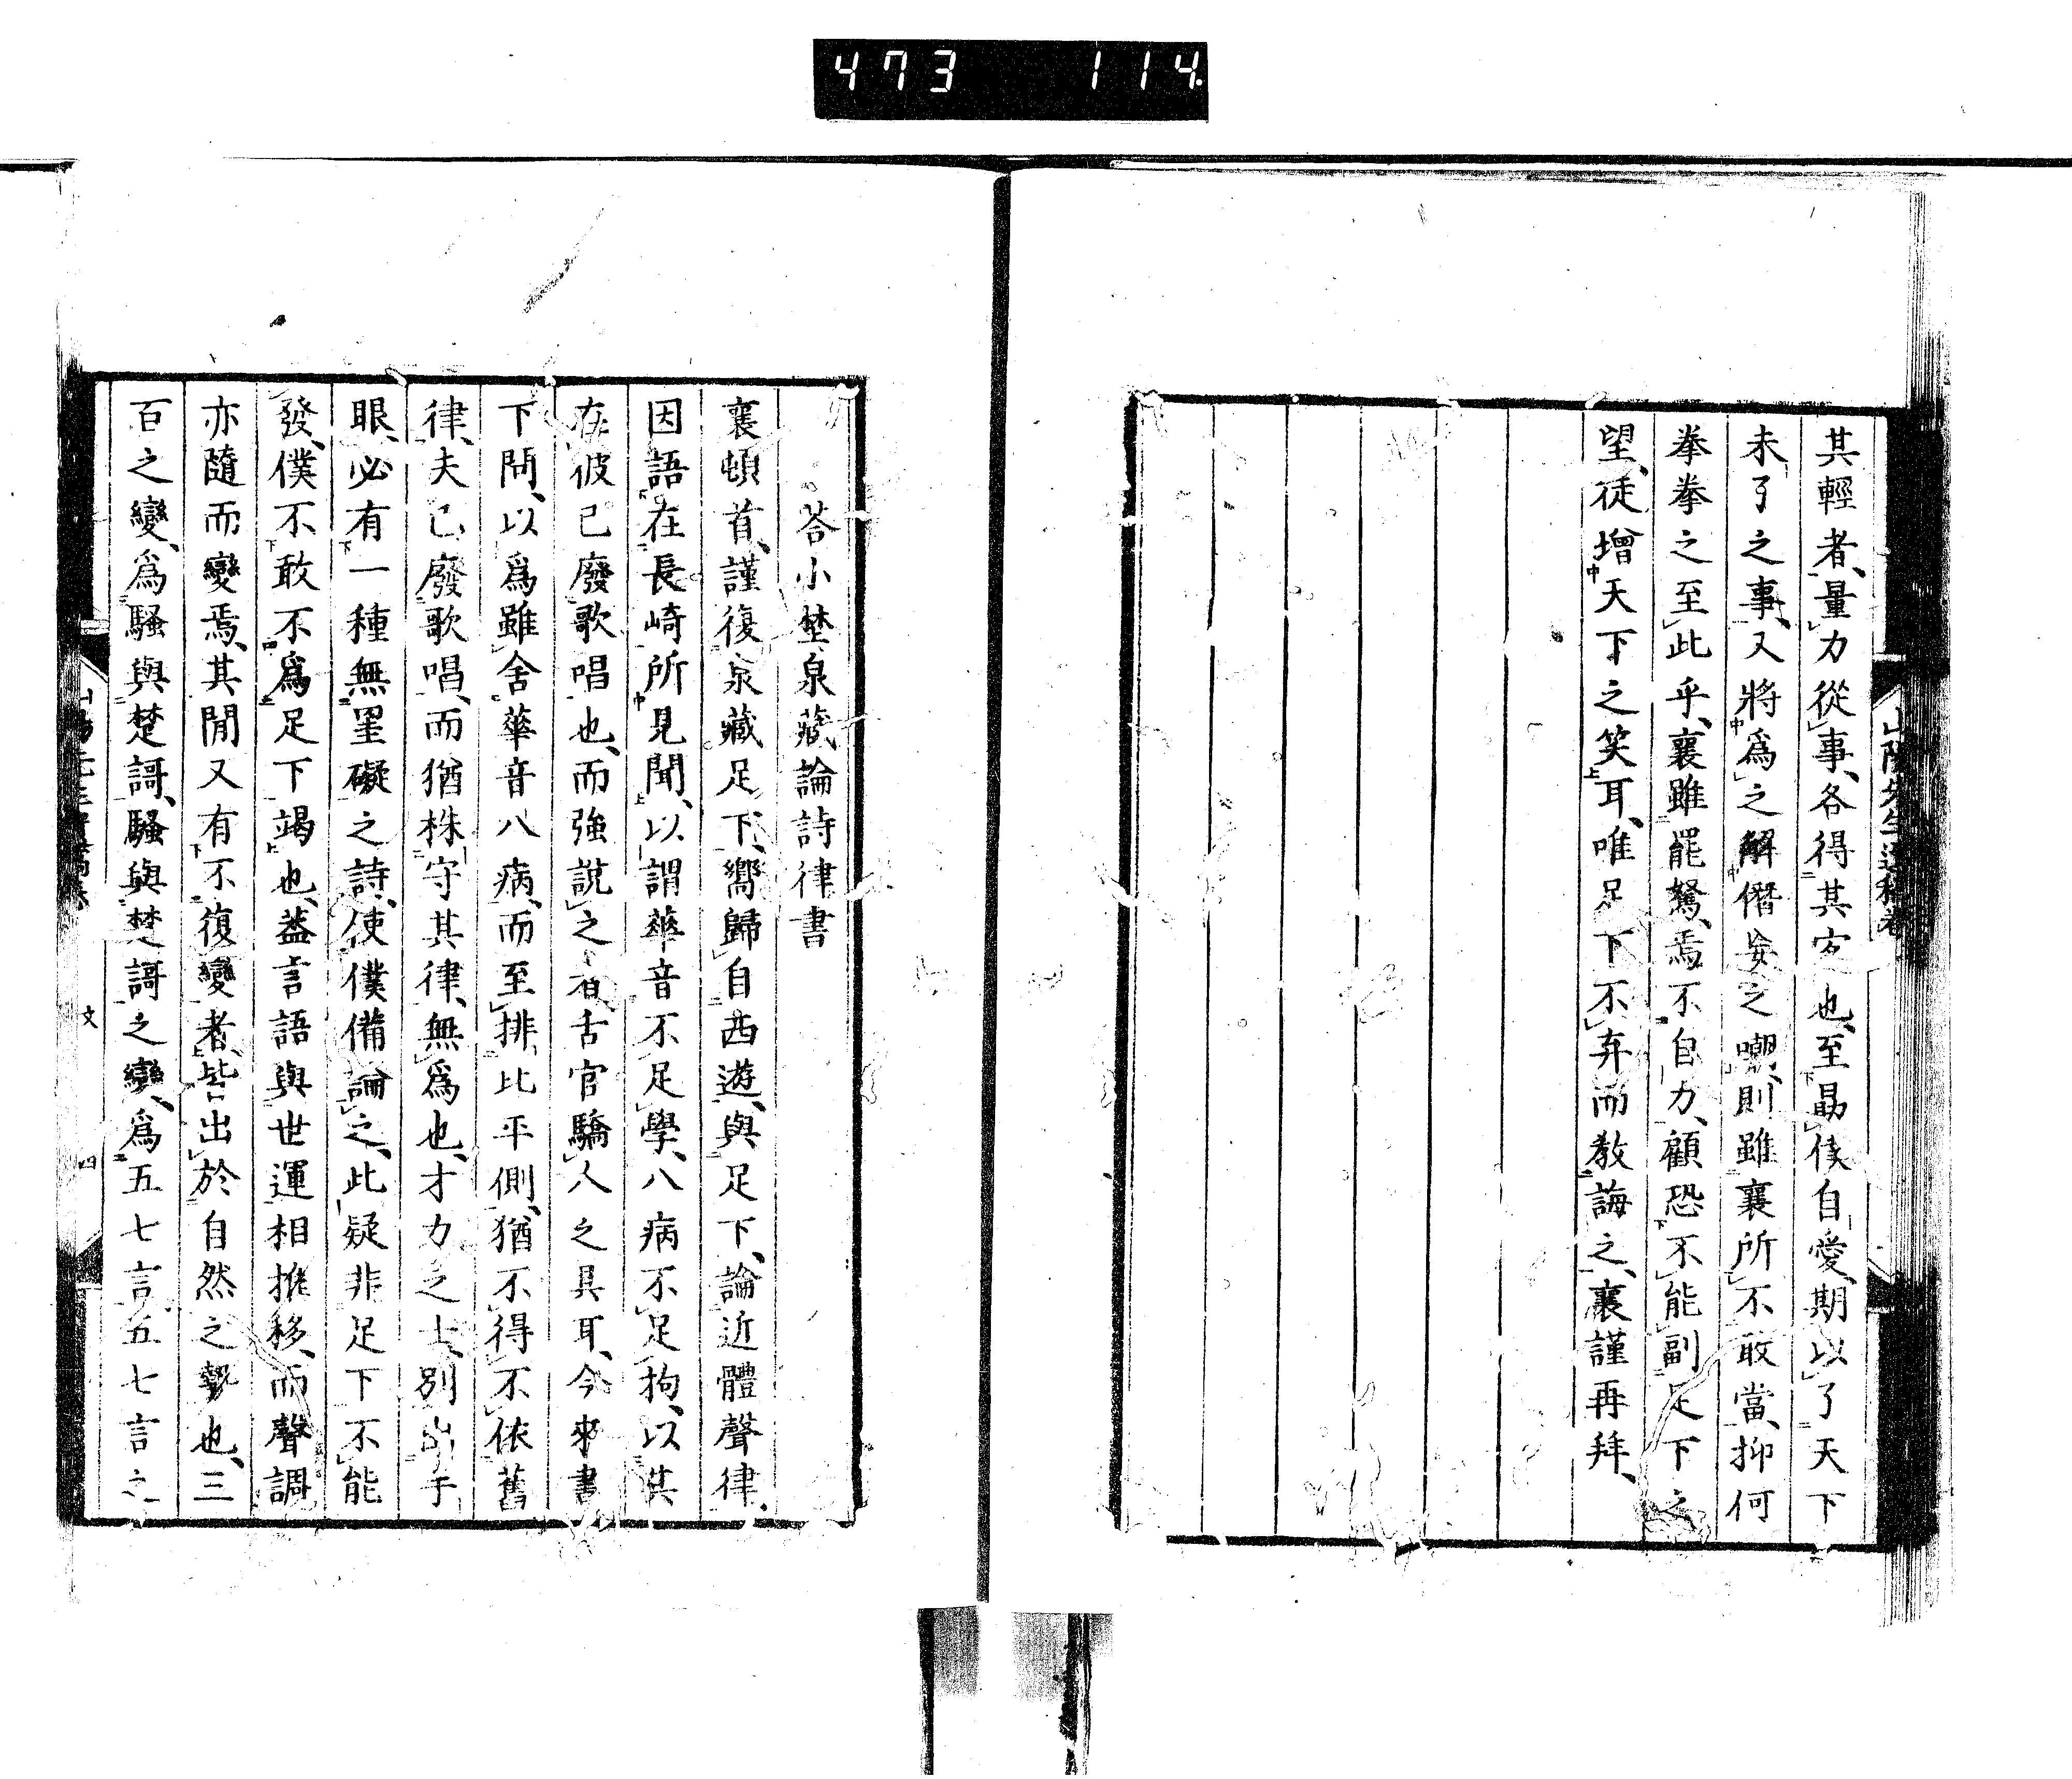 473 114
其輕者、量力從事、各得其宜也、至勗僕自愛、期以了天下
未了之事、又將爲之解僭妄之嘲、則雖襄所不敢當、抑何
拳拳之至此乎、襄雖罷駑、焉不自力、顧恐不能副足下之
望、徒增天下之笑耳、唯足下不弃而敎誨之、襄謹再拜、
荅小埜泉藏論詩律書
襄頓首、謹復泉藏足下、嚮歸自西遊、與足下、論近體聲律、
因語在長崎所見聞、以謂華音不足學、八病不足拘、以其
在彼已廢歌唱也、而強說之者、舌官驕人之具耳、今來書
下問、以爲雖舍華音八病、而至排比平側、猶不得不依舊
律、夫已廢歌唱、而猶株守其律、無爲也、才力之士、別出手
眼、必有一種無罣礙之詩、使僕備論之、此疑非足下不能
發、僕不敢不爲足下竭也、蓋言語與世運相推移、而聲調
亦隨而變焉、其閒又有不復變者、皆出於自然之勢也、三
百之變、爲騷與楚謌、騷與楚謌之變、爲五七言、五七言之
文
四